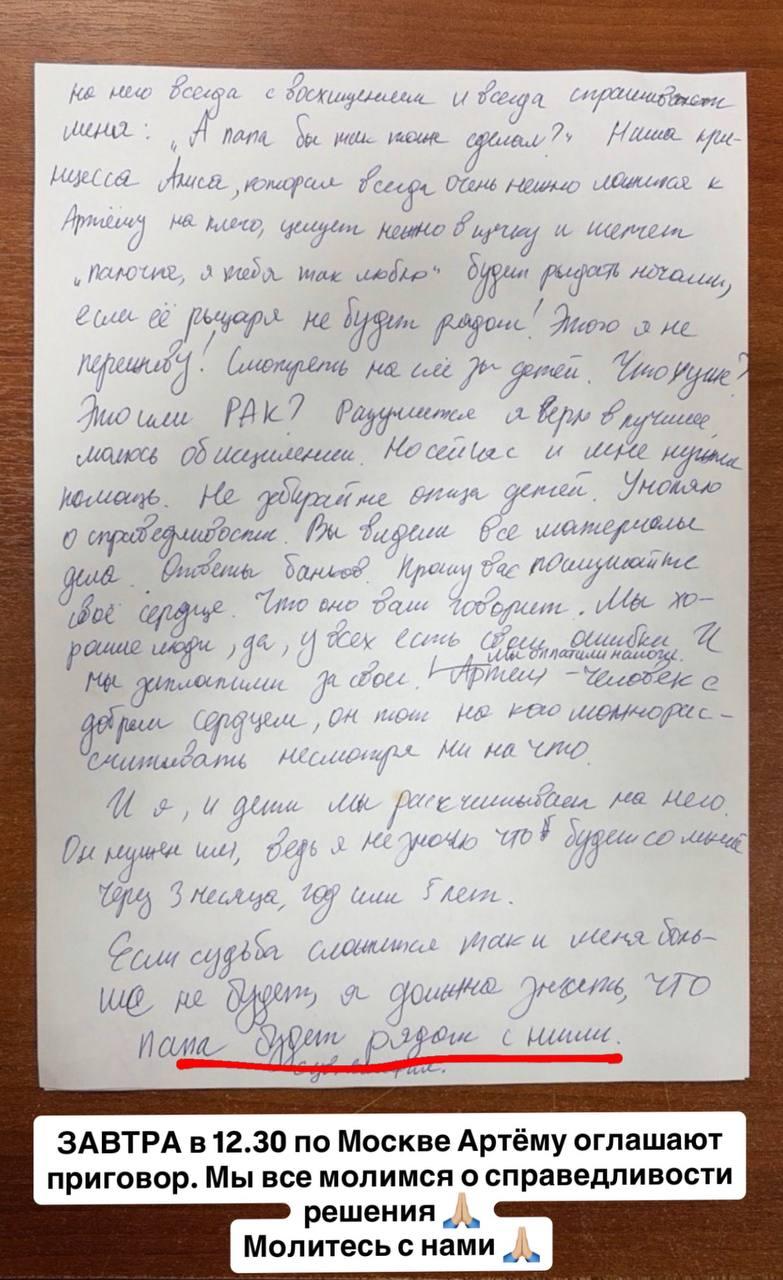 на него всегда с восхищением и всегда спрашивает
меня: „А папа бы так тоже сделал?“ Наша прин-
цесса Алиса, которая всегда очень нежно ложится к
Артёму на плечо, целует нежно в щечку и шепчет
„папочка, я тебя так люблю“ будет рыдать ночами,
если её рыцаря не будет рядом! Этого я не
переживу! Смотреть на слёзы детей. Что хуже?
Это или РАК? Разумеется я верю в лучшее,
молюсь об исцелении. Но сейчас и мне нужна
помощь. Не забирайте отца детей. Умоляю
о справедливости. Вы видели все материалы
дела. Ответы банков. Прошу вас послушайте
своё сердце. Что оно вам говорит. Мы хо-
рошие люди, да, у всех есть свои ошибки. И
мы оплатили налоги.
мы заплатили за свои. Артём – человек с
добрым сердцем, он тот на кого можно рас-
считывать несмотря ни на что.
И я, и дети мы рассчитываем на него.
Он нужен им, ведь я не знаю что будет со мной
через 3 месяца, год или 5 лет.
Если судьба сложится так и меня боль-
ше не будет, я должна знать, что
папа будет рядом с ними.
ЗАВТРА в 12.30 по Москве Артёму оглашают
приговор. Мы все молимся о справедливости
решения 🙏🏼
Молитесь с нами 🙏🏼